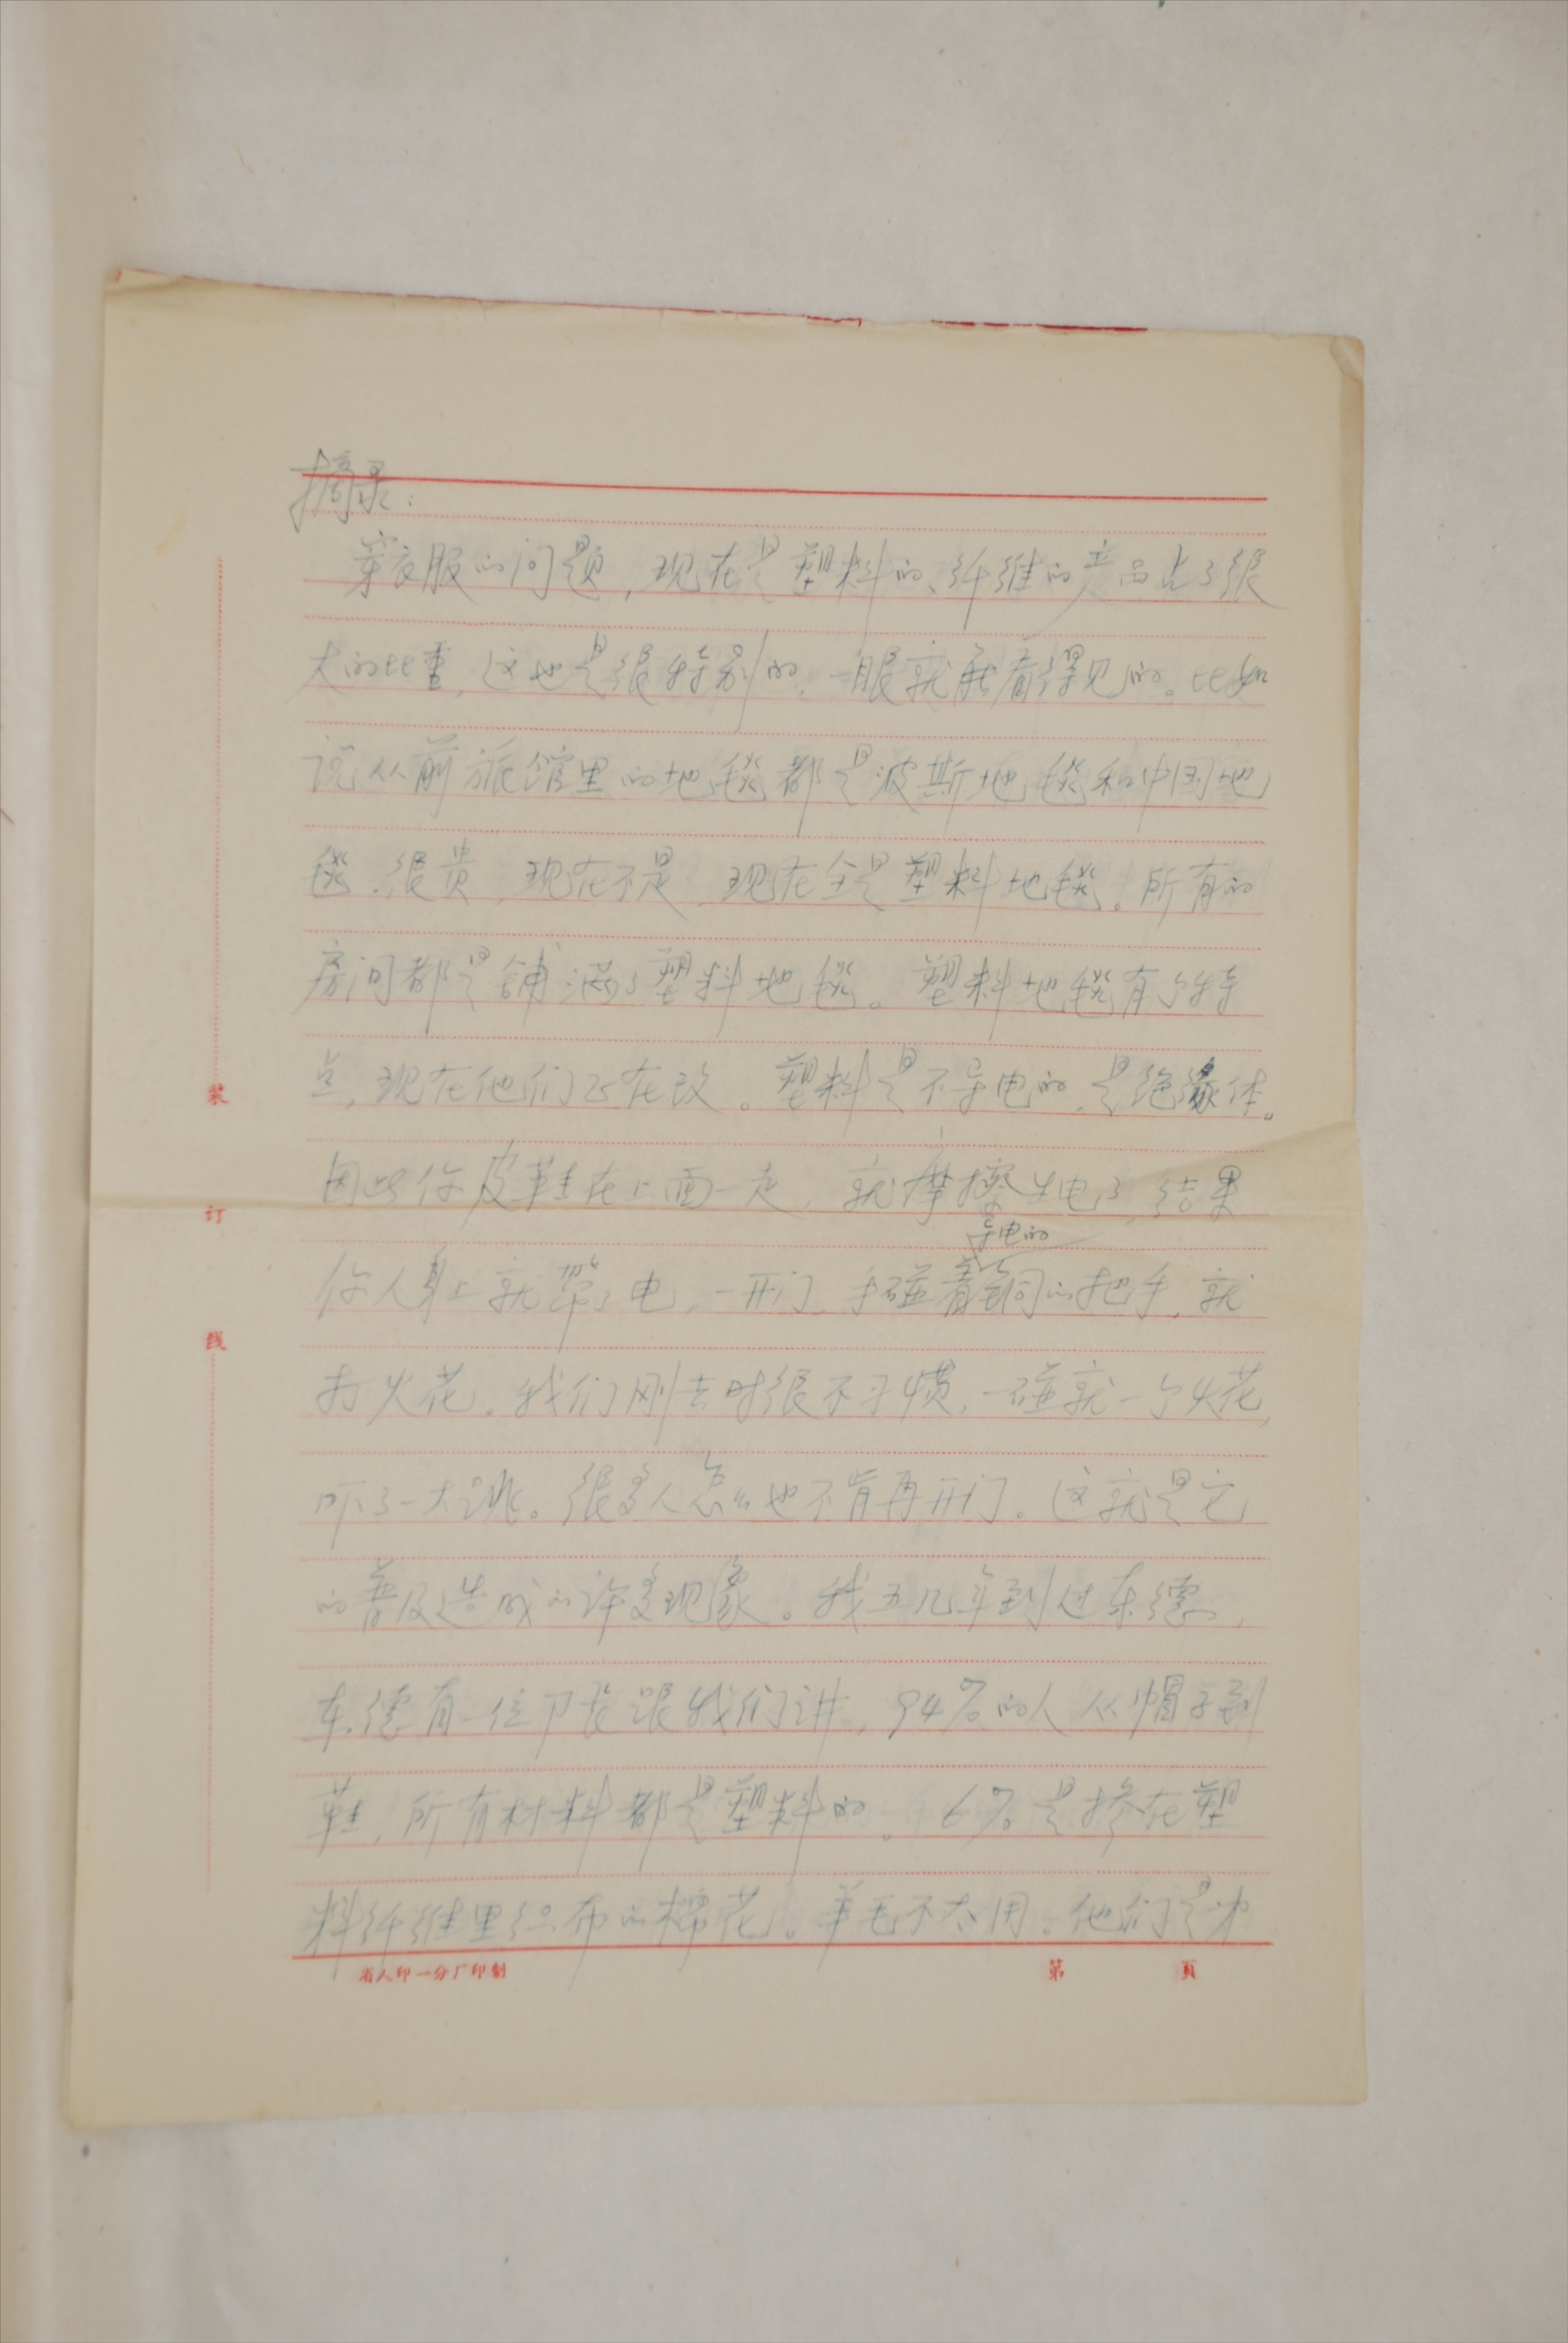 摘录:
穿衣服的问题,现在是塑料的、纤维的产品占了很
大的比重,这也是很特别的,一眼就能看得见的。比如
说从前旅馆里的地毯都是波斯地毯和中国地
毯,很贵,现在不是,现在全是塑料地毯。所有的
房间都是铺满了塑料地毯。塑料地毯有个特
点,现在他们正在改。塑料是不导电的,是绝缘体。
因此你皮鞋在上面一走,就摩擦生电了,结果
导电的
你人身上就带了电,一开门,手碰着铜的把手,就
打火花。我们刚去时很不习惯,一碰就一个火花,
吓了一大跳。很多人怎么也不肯再开门。这就是它
的普及造成的许多现象。我五几年到过东德,
东德有一位部长跟我们讲,94%的人从帽子到
鞋,所有材料都是塑料的。6%是掺在塑
料纤维里织布的棉花。羊毛不太用。他们是
装
订
线
省人印一分厂印制
第 頁